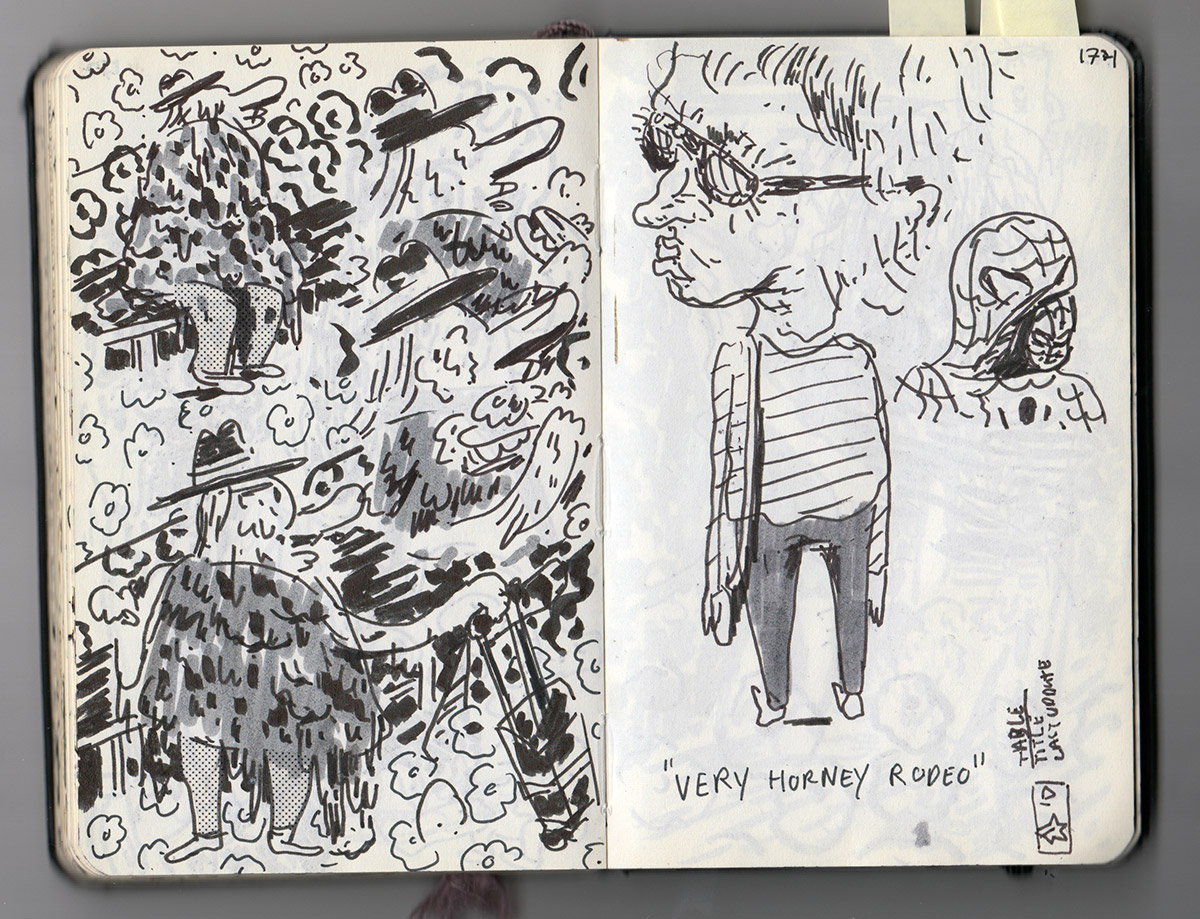 1721
"VERY HORNEY RODEO"
TABLE
TITLE
LAST UPDATE